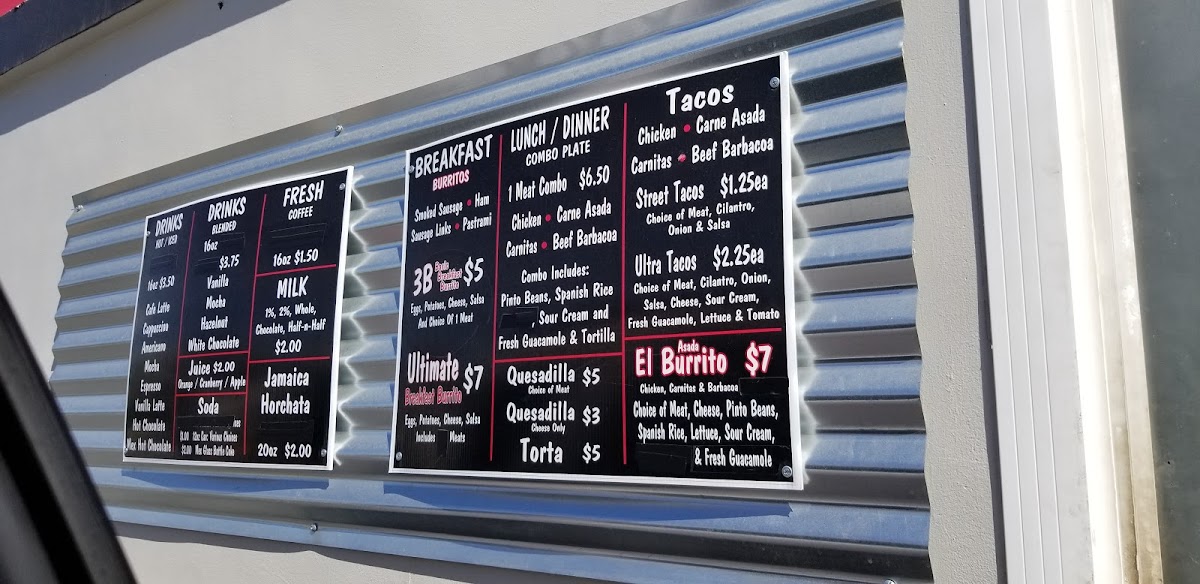 DRINKS
HOT / ICED
16oz $3.50
Cafe Latte
Cappuccino
Americano
Mocha
Espresso
Vanilla Latte
Hot Chocolate
Mex Hot Chocolate
DRINKS
BLENDED
16oz
$3.75
Vanilla
Mocha
Hazelnut
White Chocolate
Juice $2.00
Orange / Cranberry / Apple
Soda
$1.00 12oz Can: Various Choices
$2.00 Mex Glass Bottle Coke
FRESH
COFFEE
16oz $1.50
MILK
1%, 2%, Whole,
Chocolate, Half-n-Half
$2.00
Jamaica
Horchata
20oz $2.00
BREAKFAST
BURRITOS
Smoked Sausage • Ham
Sausage Links • Pastrami
3B Basic Breakfast Burrito $5
Eggs, Potatoes, Cheese, Salsa
And Choice Of 1 Meat
Ultimate
Breakfast Burrito $7
Eggs, Potatoes, Cheese, Salsa
Includes Meats
LUNCH / DINNER
COMBO PLATE
1 Meat Combo $6.50
Chicken • Carne Asada
Carnitas • Beef Barbacoa
Combo Includes:
Pinto Beans, Spanish Rice
, Sour Cream and
Fresh Guacamole & Tortilla
Quesadilla $5
Choice of Meat
Quesadilla $3
Cheese Only
Torta $5
Tacos
Chicken • Carne Asada
Carnitas • Beef Barbacoa
Street Tacos $1.25ea
Choice of Meat, Cilantro,
Onion & Salsa
Ultra Tacos $2.25ea
Choice of Meat, Cilantro, Onion,
Salsa, Cheese, Sour Cream,
Fresh Guacamole, Lettuce & Tomato
Asada
El Burrito $7
Chicken, Carnitas & Barbacoa
Choice of Meat, Cheese, Pinto Beans,
Spanish Rice, Lettuce, Sour Cream,
& Fresh Guacamole